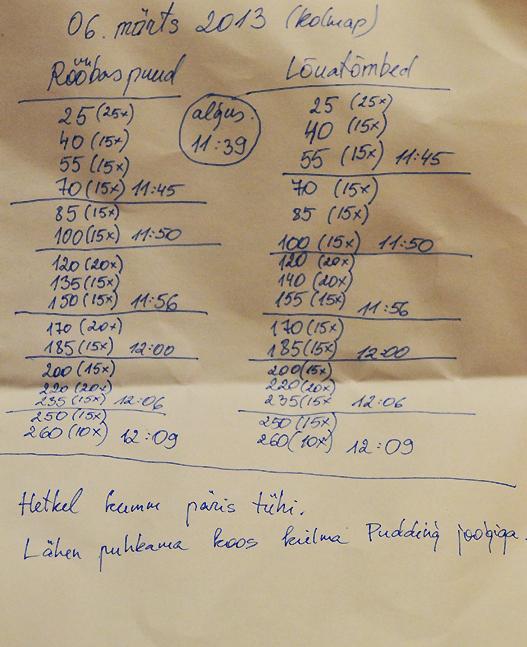 06. märts 2013 (kolmap)
Rööbaspuud
25 (25x)
40 (15x)
55 (15x)
70 (15x) 11:45
85 (15x)
100 (15x) 11:50
120 (20x)
135 (15x)
150 (15x) 11:56
170 (20x)
185 (15x) 12:00
200 (15x)
220 (20x)
235 (15x) 12:06
250 (15x)
260 (10x) 12:09
algus.
11:39
Lõuatõmbed
25 (25x)
40 (15x)
55 (15x) 11:45
70 (15x)
85 (15x)
100 (15x) 11:50
120 (20x)
140 (20x)
155 (15x) 11:56
170 (15x)
185 (15x) 12:00
200 (15x)
220 (20x)
235 (15x 12:06
250 (15x)
260 (10x) 12:09
Hetkel kumm päris tühi.
Lähen puhkama koos külma Pudding joogiga.